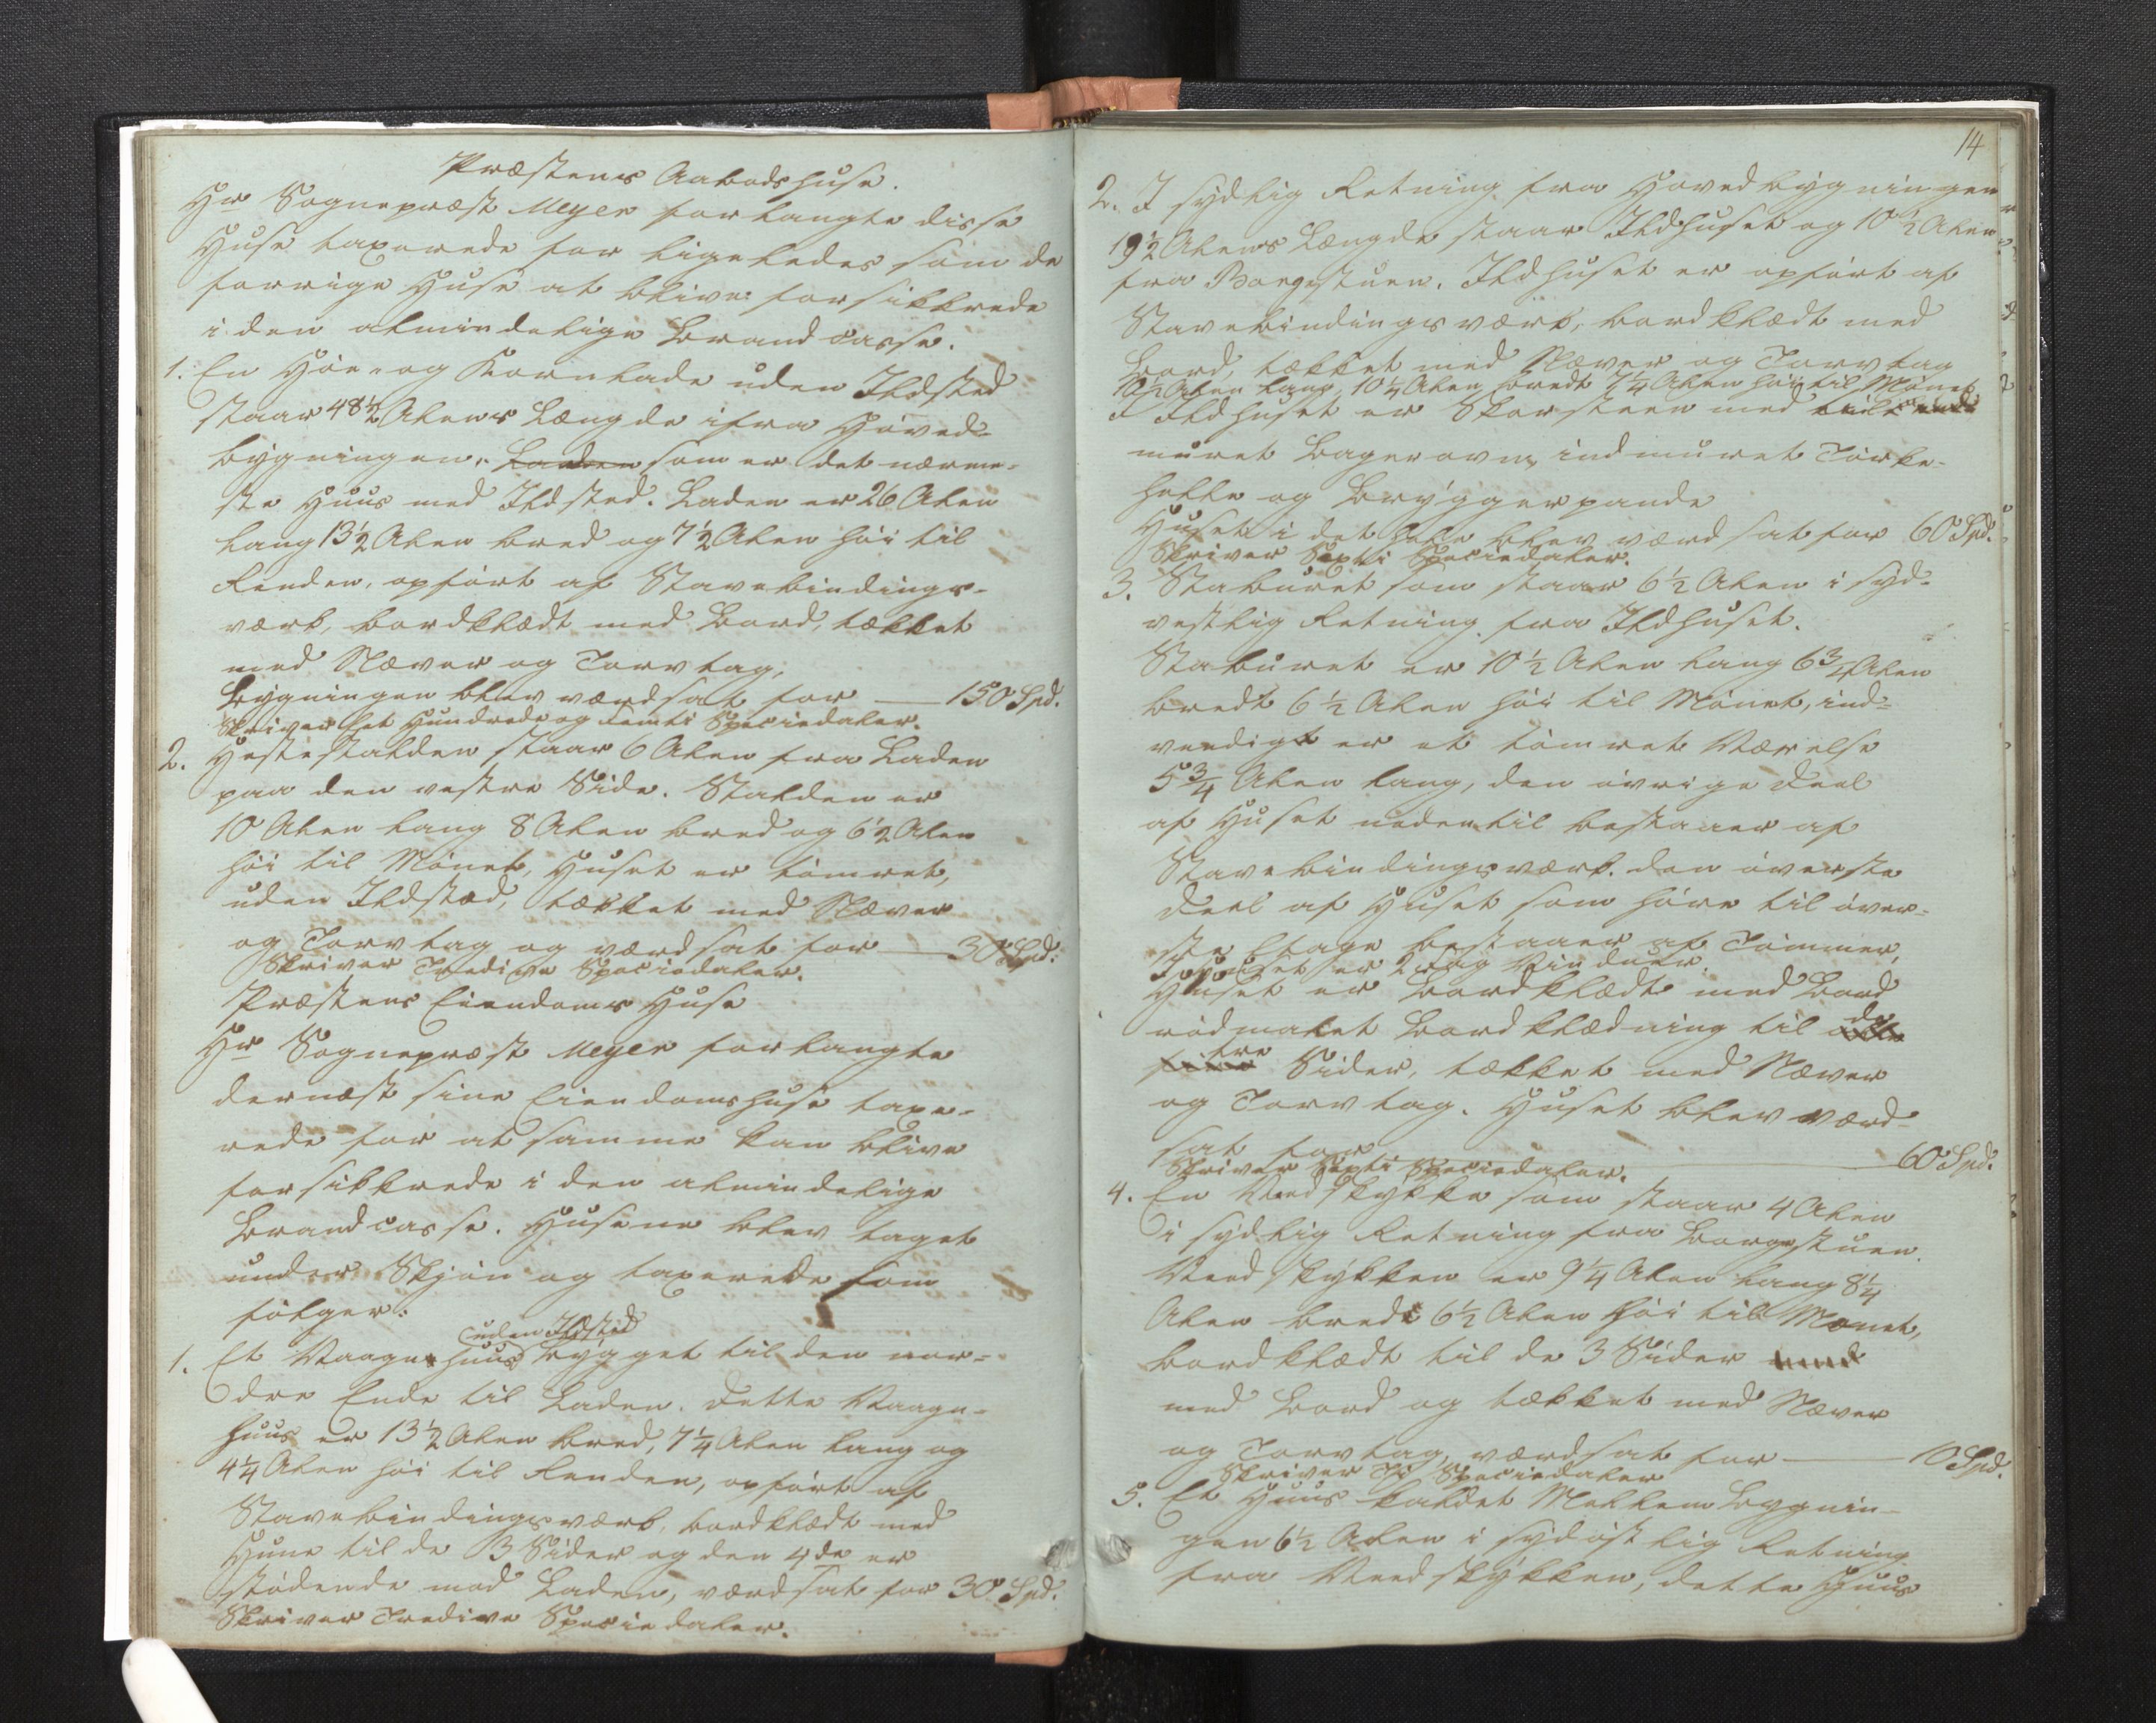 Præstens Aabodshuse.
Hr Sognepræst Meyer forlangte disse
Huse taxerede for ligeledes som de
forrige Huse at blive forsikkrede
i den almindelige Brandcasse.
1. En Höe- og Kornlade uden Ildsted
staar 48½ Alens Længde ifra Hoved-
bygningen, Laden som er det nærme-
ste Huus med Ildsted. Laden er 26 Alen
lang 13½ Alen bred og 7½ Alen höi til
Renden, opfört af Stavebindings-
værk, bordklædt med Bord, tækket
med Næver og Torvtag,
Bygningen blev værdsat for — 150 Spd.
Skriver Et Hundrede og Femti Speciedaler.
2. Hestestalden staar 6 Alen fra Laden
paa den vestre Side. Stalden er
10 Alen lang 8 Alen bred og 6½ Alen
höi til Mönet, Huset er tömret,
uden Ildsted, tækket med Næver
og Torvtag og værdsat for — 30 Spd.
Skriver Tredive Speciedaler.
Præstens Eiendoms Huse
Hr Sognepræst Meyer forlangte
dernæst sine Eiendomshuse taxe-
rede for at samme kan blive
forsikkrede i den almindelige
Brandcasse. Husene blev taget
under Skjön og taxerede som
fölger:
uden Ildsted
1. Et Vaagnhuus bygget til den nor-
dre Ende til Laden. Dette Vaagn-
huus er 13½ Alen bred, 7¼ Alen lang og
4¼ Alen höi til Renden, opfört af
Stavebindingsværk, bordklædt med
Hune til de 3 Sider og den 4de er
stödende mod Laden, værdsat for 30 Spd.
Skriver Tredive Speciedaler.
14
2. I sydlig Retning fra Hovedbygningen
19½ Alens Længde staar Ildhuset og 10½ Alen
fra Borgestuen. Ildhuset er opfört af
Stavebindingsværk, bordklædt med
Bord, tækket med Næver og Torvtag
10½ Alen lang, 10¼ Alen bredt 7¼ Alen höi til Mönet
I Ildhuset er Skorsteen med
muret Bagerovn, indmuret Törke-
helle og Bryggerpande
Huset i det hele blev værdsat for 60 Spd.
Skriver Sexti Speciedaler.
3. Staburet som staar 6½ Alen i syd-
vestlig Retning fra Ildhuset.
Staburet er 10½ Alen lang 6¾ Alen
bredt 6½ Alen höi til Mönet, ind-
vendigt er et tömret Værelse
5¾ Alen lang, den övrige Deel
af Huset nedentil bestaaer af
Stavebindingsværk. den överste
Deel af Huset som höre til över-
ste Etage bestaaer af Tömmer,
I Huset er 2 Fag Vinduer.
Huset er bordklædt med Bord
rödmalet Bordklædning til de
tre Sider, tækket med Næver
og Torvtag. Huset blev værd-
sat for — 60 Spd.
Skriver Sexti Speciedaler.
4. En Vedskykke som staar 4 Alen
i sydlig Retning fra Borgestuen.
Vedskykken er 9¼ Alen lang 8¼
Alen bredt 6½ Alen höi til Mönet,
bordklædt til de 3 Sider
med Bord og tækket med Næver
og Torvtag, værdsat for — 10 Spd.
Skriver Ti Speciedaler
5. Et Huus kaldet Mellem Bygnin-
gen 6½ Alen i sydöstlig Retning
fra Vedskykken, dette Huus